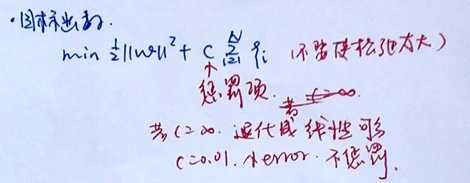 ·目标函数.
min ½||w||² + C Σᵢ₌₁ᴺ ξᵢ (不能使松弛太大)
↑
惩罚项.
若C=∞. 退化成线性可分
C=0.01. 大error. 不惩罚.